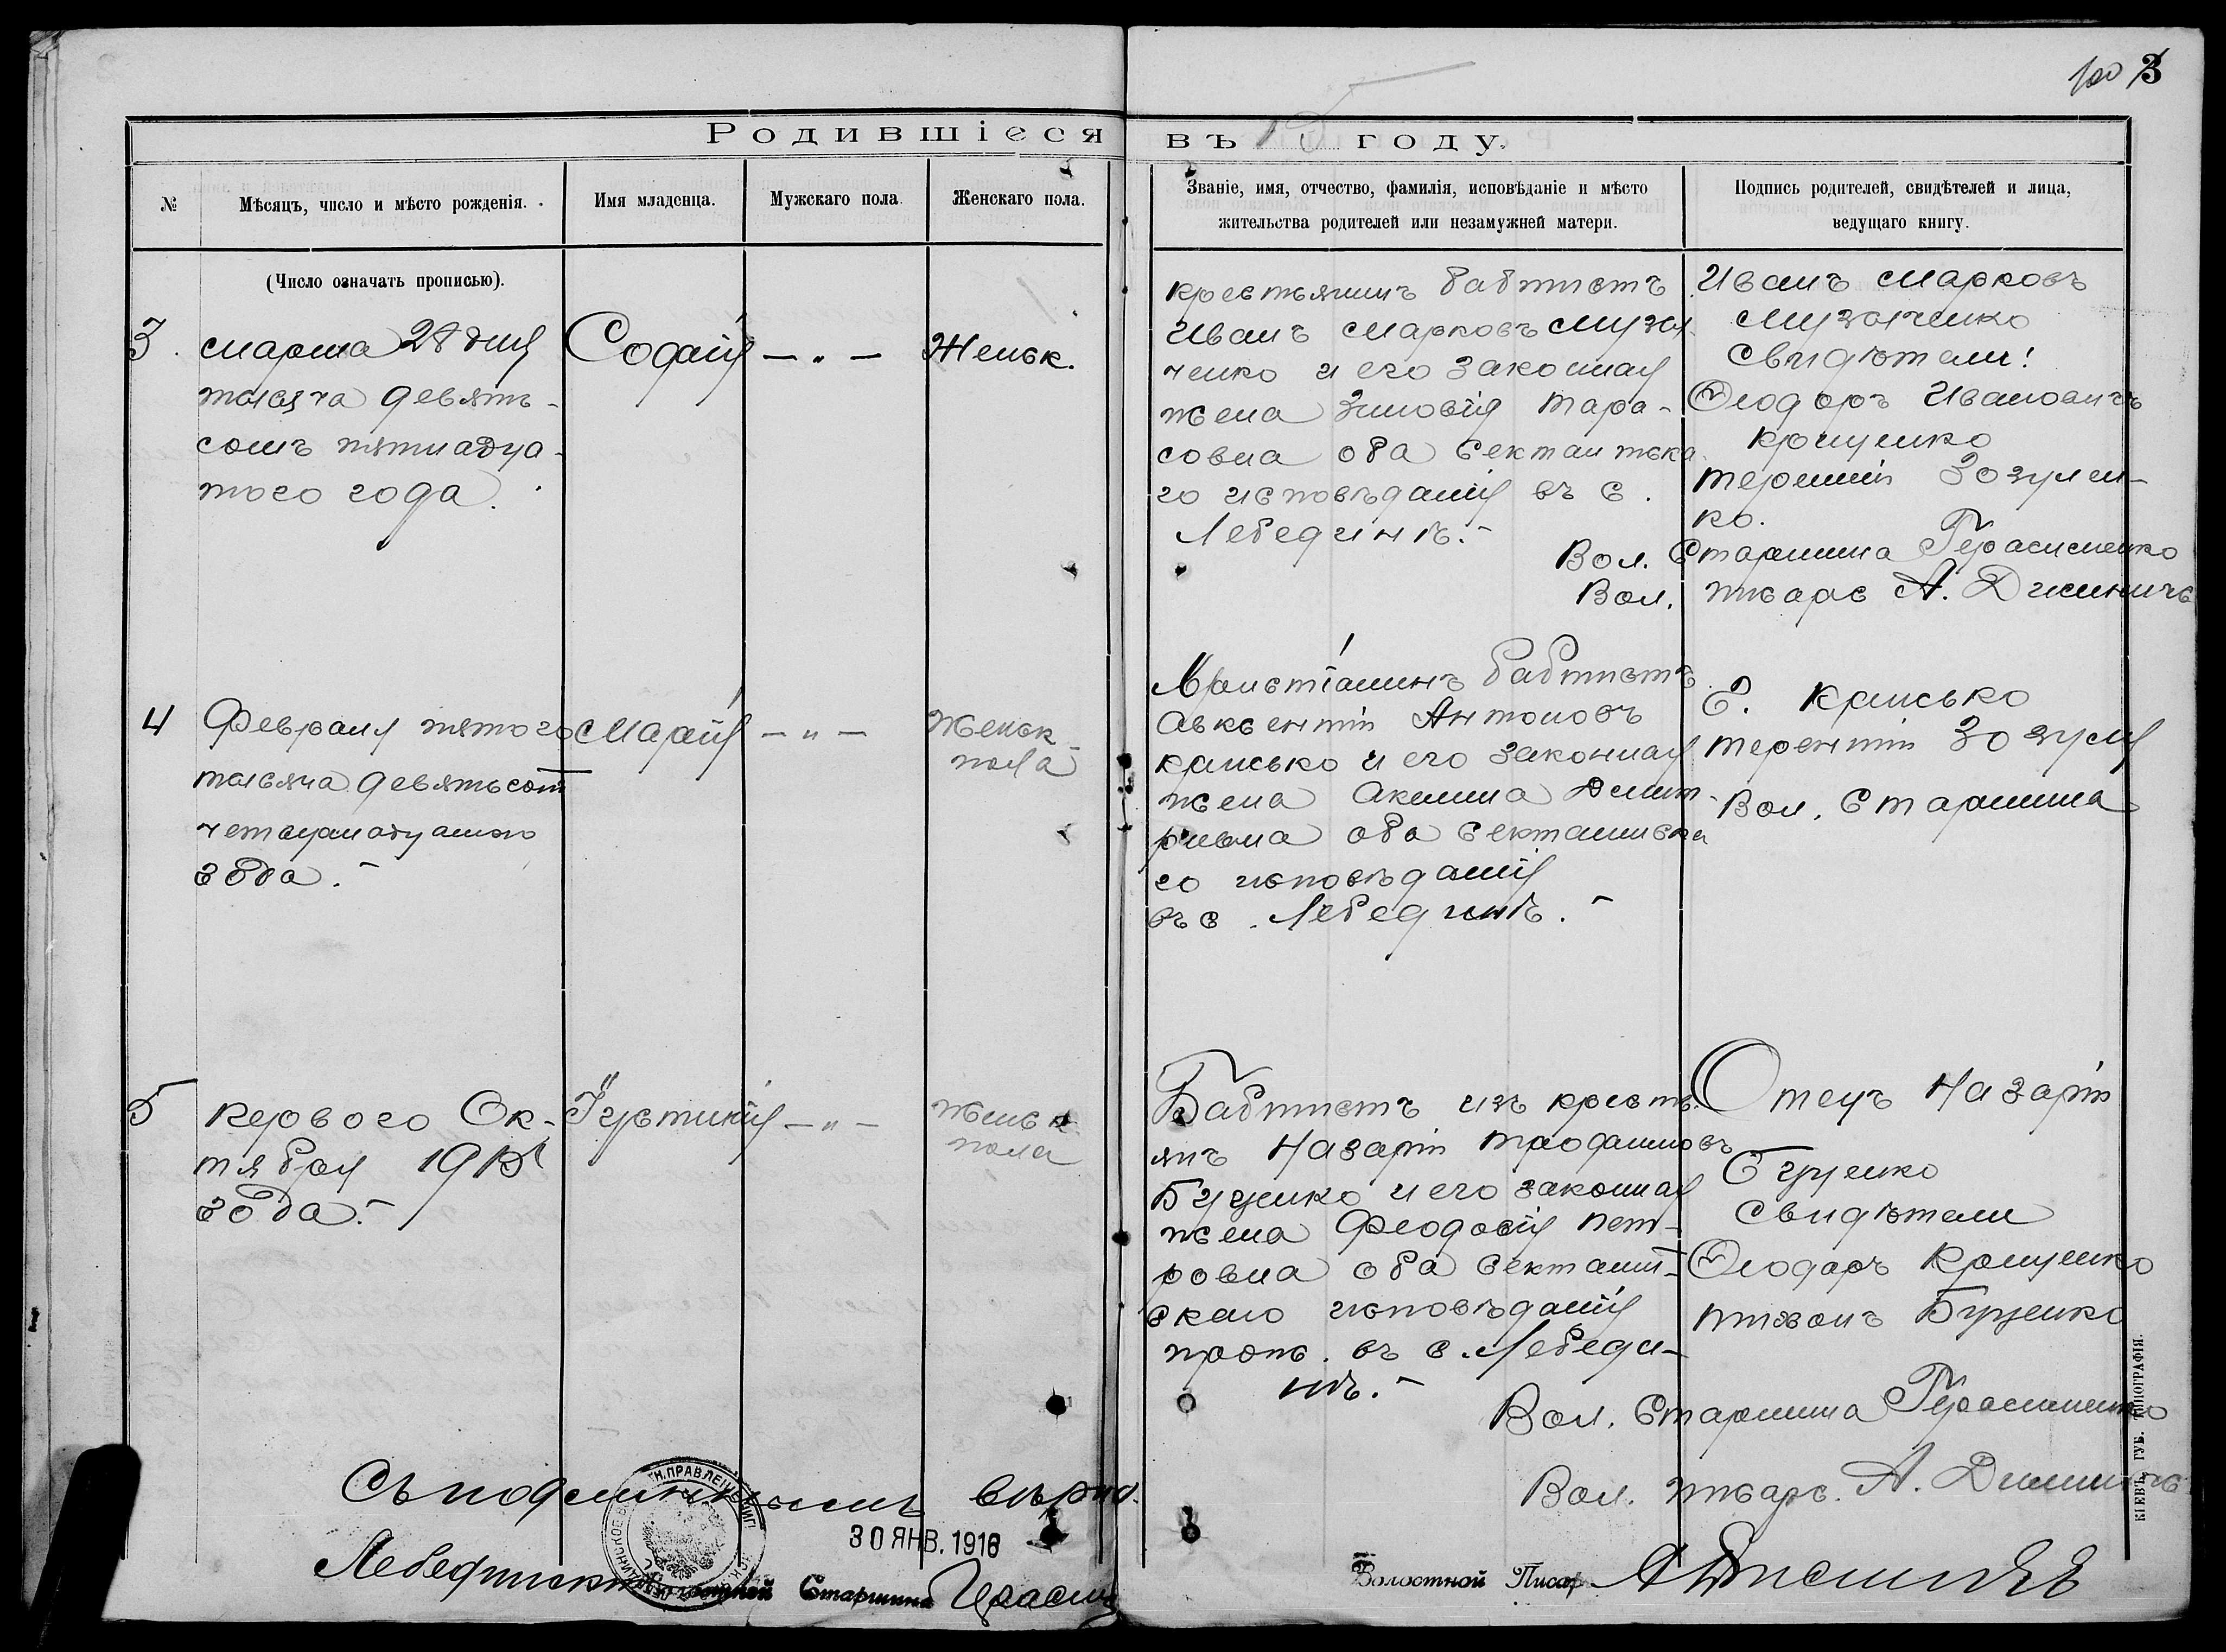 100 3
Родившіеся въ 15 году.
№
Мѣсяцъ, число и мѣсто рожденія.
Имя младенца.
Мужскаго пола.
Женскаго пола.
Званіе, имя, отчество, фамилія, исповѣданіе и мѣсто
жительства родителей или незамужней матери.
Подпись родителей, свидѣтелей и лица,
ведущаго книгу.
(Число означать прописью).
3.
марта 28 дня
тысяча девять-
сотъ пятнадца-
того года.
Софія
— „ —
Женск.
крестьянинъ баптистъ
Иванъ Марковъ Муза-
ченко и его законная
жена Зиновія Тара-
совна оба сектантска
го исповѣданія въ с.
Лебединѣ.-
Иванъ Марковъ
Музаченко
Свидѣтели:
Ѳеодоръ Ивановичъ
Крыценко
Терентій Зозулен-
ко.
Вол. Старшина Герасименко
Вол. писарь А.
4
Февраля пятого
тысяча девятьсот
четырнадцатого
года.-
Марія
— „ —
Женск-
пола
Христіанинъ баптистъ
Авксентій Антоновъ
и его законная
жена Акилина Дмит-
ріевна оба сектантска
го исповѣданія
въ с. Лебединѣ.-
Терентій Зозуля
Вол. Старшина
5
Первого Ок-
тября 1915
года.-
Іустинія
— „ —
женск.
пола
Баптистъ изъ кресть-
янъ Назарій Трофимовъ
Буценко и его законная
жена Феодосія Пет-
ровна оба сектант-
скаго исповѣданія
прож. въ с. Лебеди-
нѣ.-
Отецъ Назарій
Буценко
Свидѣтели
Ѳеодоръ Крыценко
Буценко
Вол. Старшина Герасименко
Вол. писарь. А.
Съ подлиннымъ вѣрно.
30 ЯНВ. 1916
Лебединскій Волостной Старшина Герасим
Волостной Писарь
КІЕВЪ, ГУБ. ТИПОГРАФІЯ.